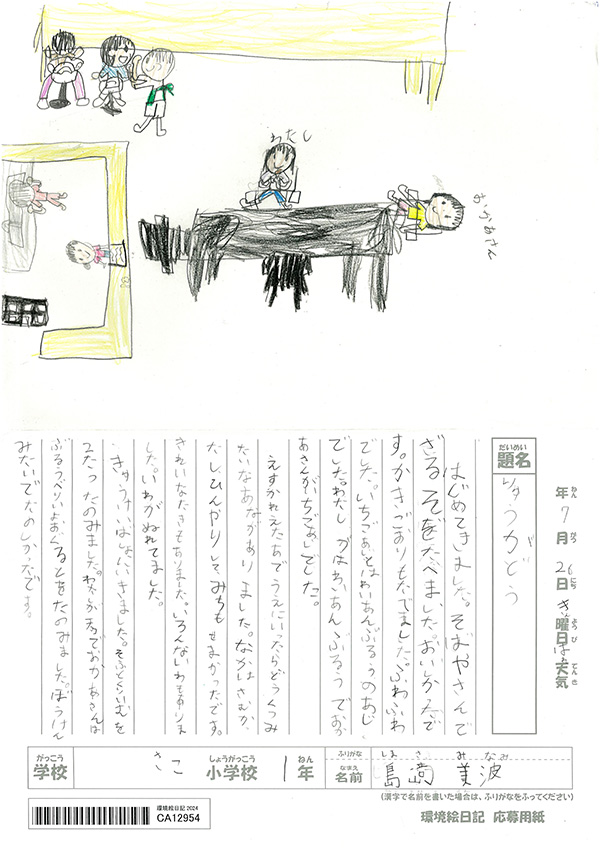 わたし
おかあさん
だいめい
題名
りゅうがどう
ねん がつ にち ようび てんき
年7月26日きん曜日はれ天気
はじめてきました。そばやさんで
ざるそばをたべました。おいしかったで
す。かきごおりもたべました。ふわふわ
でした。いちごあじとはわいあんぶるうのあじ
でした。わたしがはわいあんぶるうでおか
あさんがいちごあじでした。
えすかれえたあでうえにいったらどうくつみ
たいなあながありました。なかはさむか
たしひんやりしてみちもせまかったです。
きれいなたきもありました。いろんないわもありま
した。いわがぬれてました。
きゅうけいばしょにいきました。そふとくりいむを
2たつたのみました。わたしが
ぶるうべりいよおぐるとをたのみました。ぼうけん
みたいでたのしかったです。
がっこう
学校
さこ
しょうがっこう
小学校
1
ねん
年
ふりがな
なまえ
名前
しま さき み なみ
島崎 美波
(漢字で名前を書いた場合は、ふりがなをふってください)
環境絵日記 2024
CA12954
環境絵日記 応募用紙